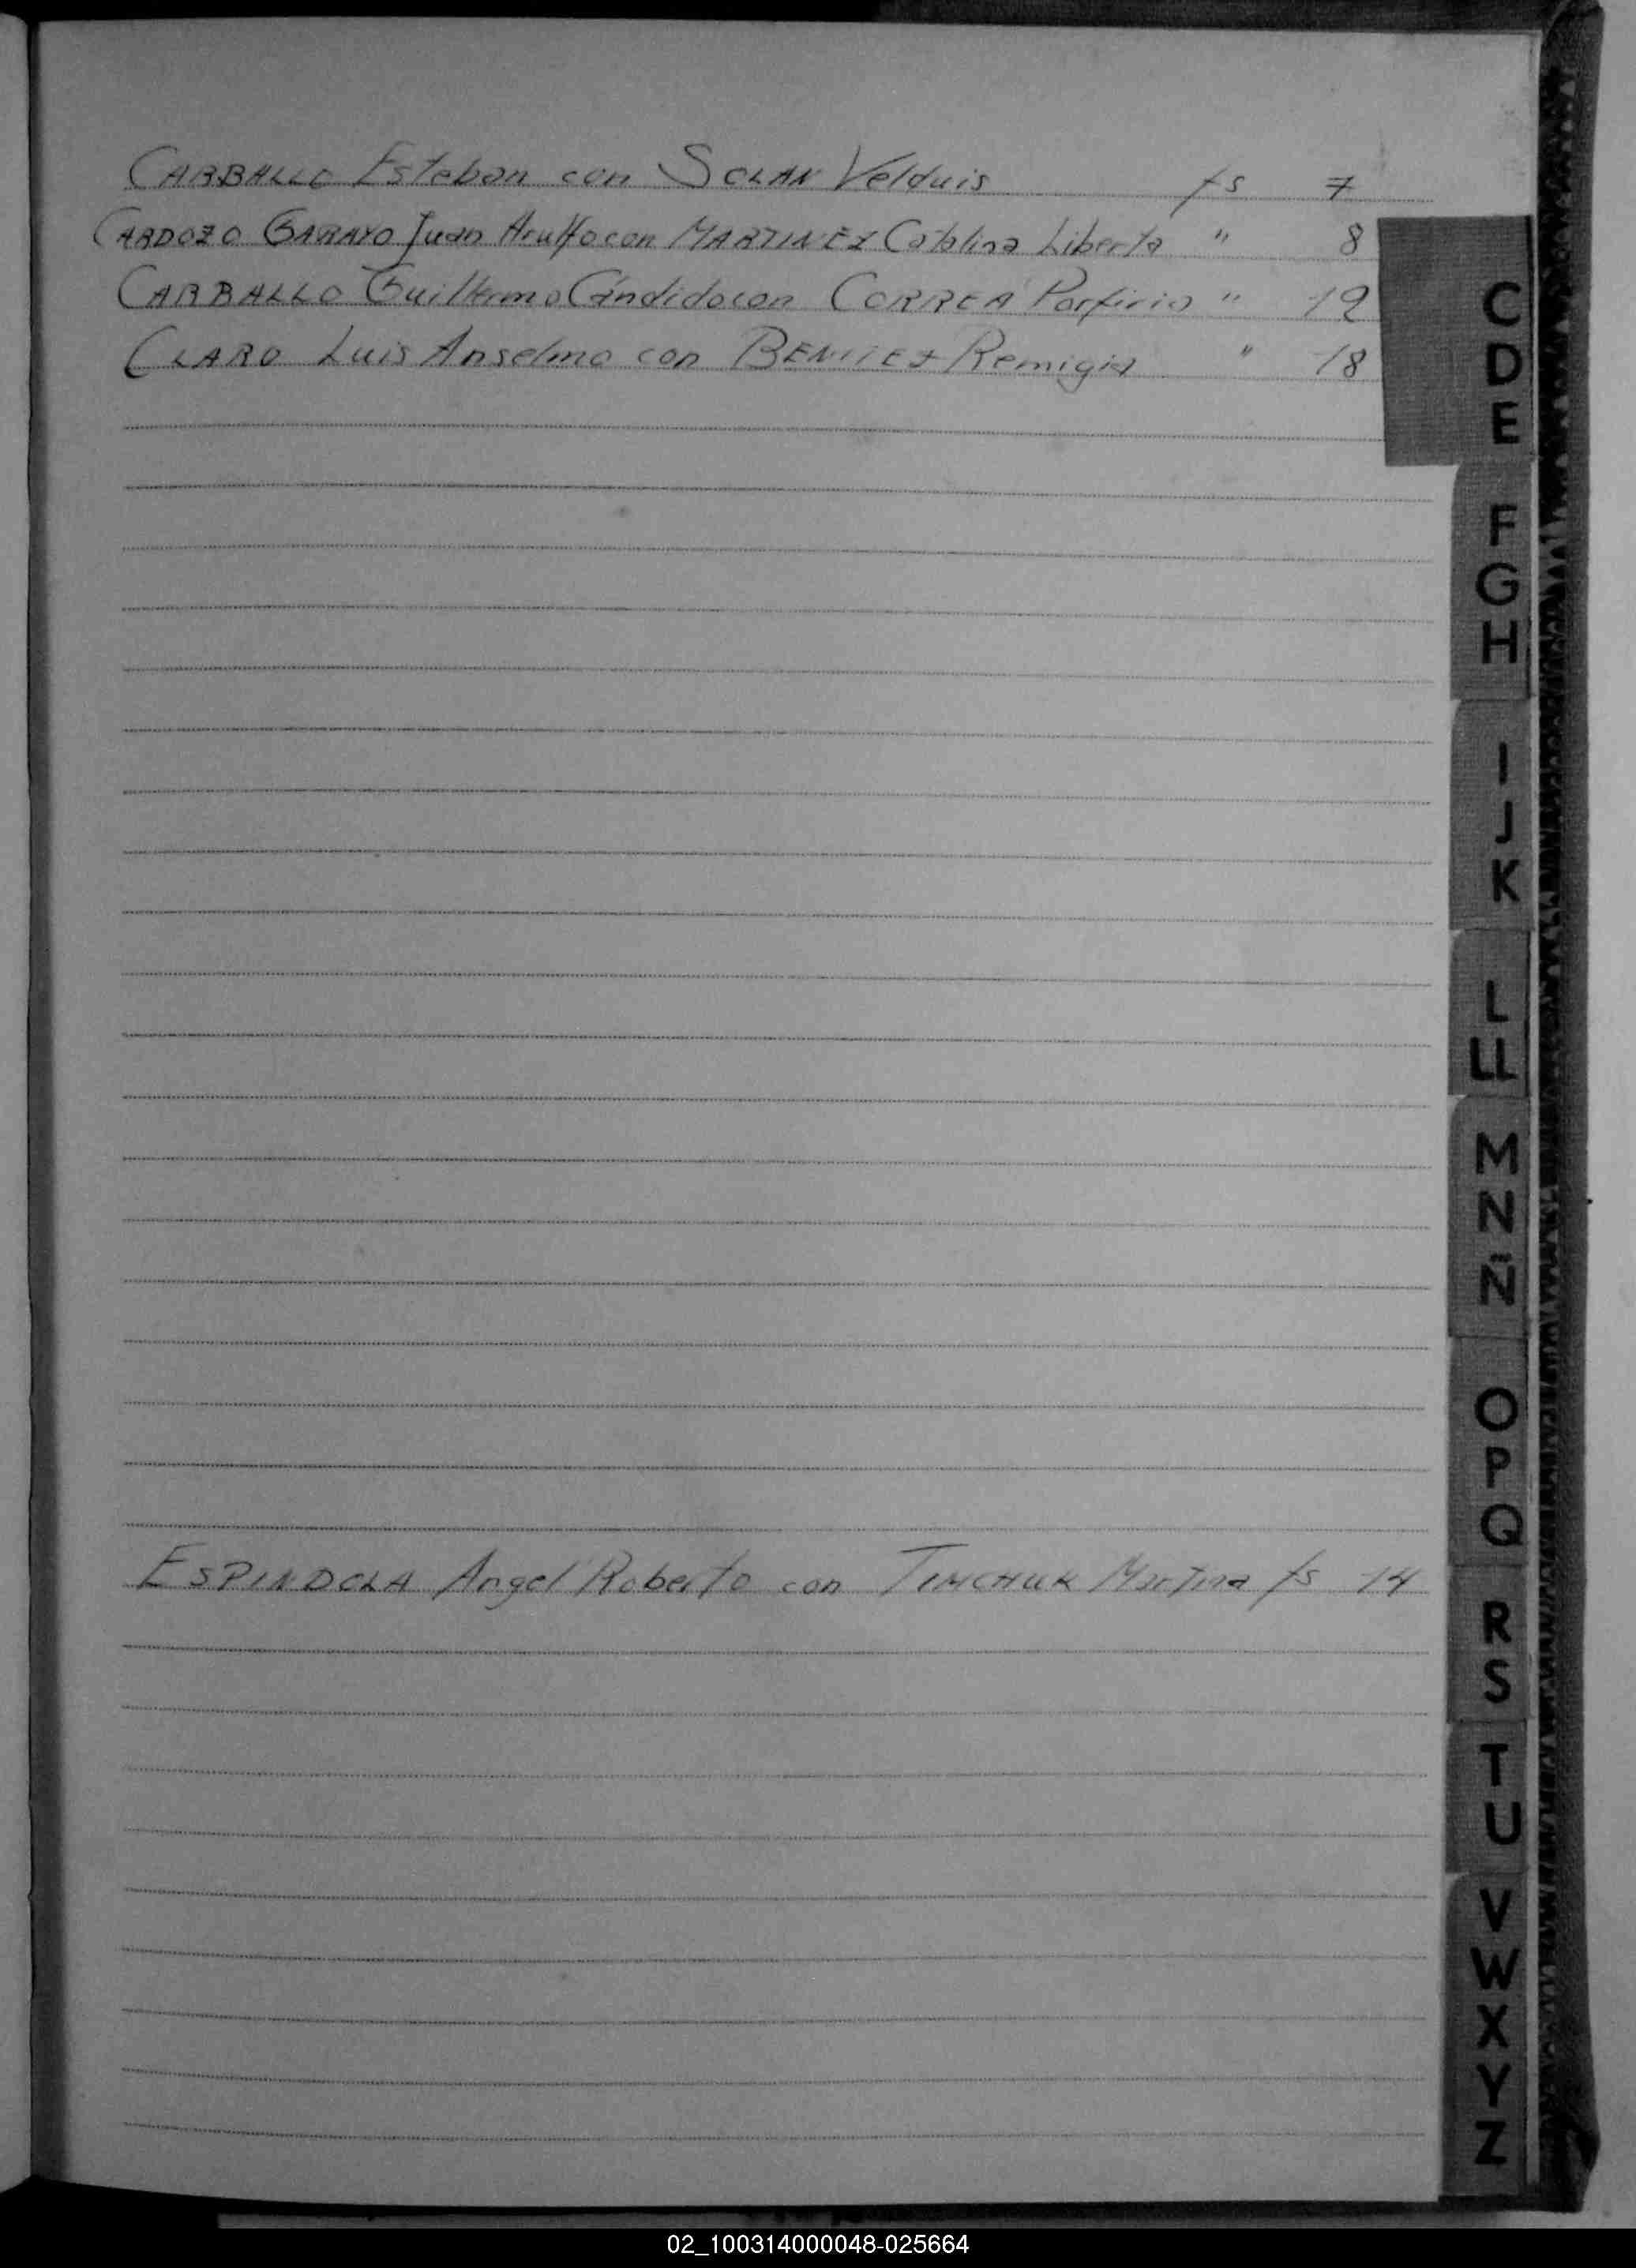 CARBALLO Esteban con SOLAN Velduis fs 7
CARDOZO GARAYO Juan Arulfo con MARTINEZ Catalina Liberta " 8
CARBALLO Guillermo Cándido con CORREA Porfiria " 12
CLARO Luis Anselmo con BENITEZ Remigia " 18
C
D
E
F
G
H
I
J
K
L
LL
M
N
Ñ
ESPINDOLA Angel Roberto con TIMCHUK Martina fs 14
O
P
Q
R
S
T
U
V
W
X
Y
Z
02_100314000048-025664